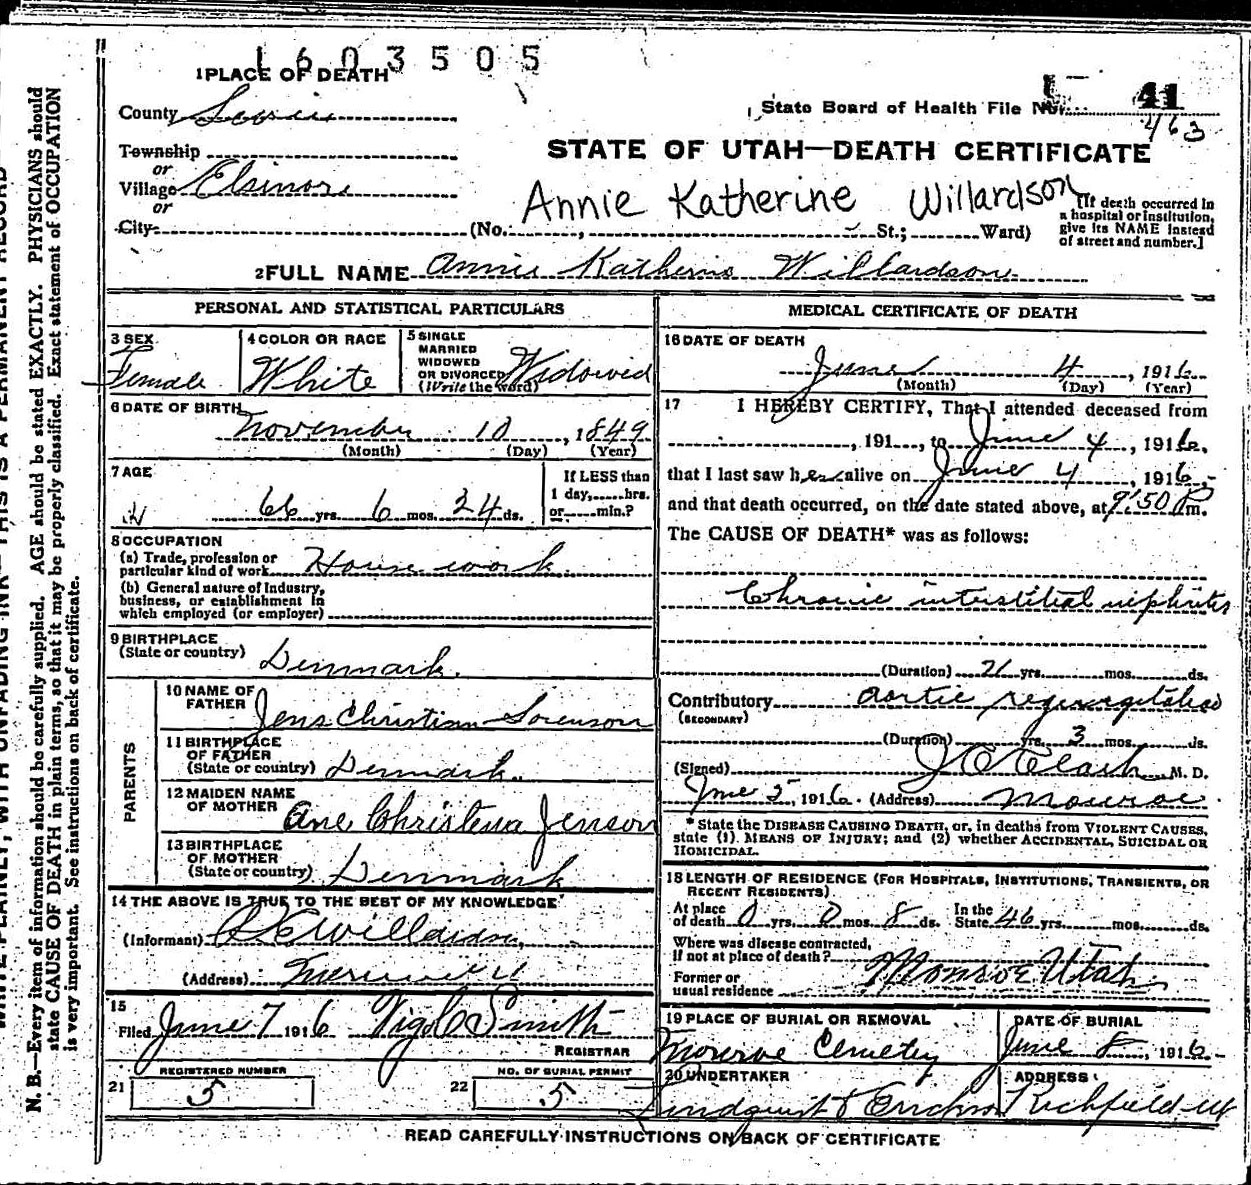 1603505
1 PLACE OF DEATH
State Board of Health File No. 41
463
County Sevier
STATE OF UTAH—DEATH CERTIFICATE
Township
or
Village Elsinore
or
City
Annie Katherine Willardson
(No. , St.; Ward)
[If death occurred in
a hospital or institution,
give its NAME instead
of street and number.]
2 FULL NAME Annie Katherine Willardson
PERSONAL AND STATISTICAL PARTICULARS
3 SEX
Female
4 COLOR OR RACE
White
5 SINGLE
MARRIED
WIDOWED
OR DIVORCED
(Write the word)
Widowed
6 DATE OF BIRTH
November 10, 1849
(Month) (Day) (Year)
7 AGE
66 yrs. 6 mos. 24 ds.
If LESS than
1 day,......hrs.
or......min.?
8 OCCUPATION
(a) Trade, profession or
particular kind of work House work
(b) General nature of Industry,
business, or establishment in
which employed (or employer)
9 BIRTHPLACE
(State or country) Denmark.
PARENTS
10 NAME OF
FATHER Jens Christian Sorenson
11 BIRTHPLACE
OF FATHER
(State or country) Denmark.
12 MAIDEN NAME
OF MOTHER Ane Christena Jenson
13 BIRTHPLACE
OF MOTHER
(State or country) Denmark
14 THE ABOVE IS TRUE TO THE BEST OF MY KNOWLEDGE
(Informant) Willardson,
(Address)
15
Filed June 7 1916 Smith
REGISTRAR
21 REGISTERED NUMBER
5
22 NO. OF BURIAL PERMIT
5
MEDICAL CERTIFICATE OF DEATH
16 DATE OF DEATH
June 4, 1916
(Month) (Day) (Year)
17 I HEREBY CERTIFY, That I attended deceased from
, 191 , to June 4, 1916,
that I last saw her alive on June 4, 1916,
and that death occurred, on the date stated above, at 9:50 P m.
The CAUSE OF DEATH* was as follows:
Chronic interstitial nephritis
(Duration) yrs. mos. ds.
Contributory aortic regurgitation
(SECONDARY)
(Duration) yrs. 3 mos. ds.
(Signed) M. D.
June 5, 1916. (Address) Monroe
* State the DISEASE CAUSING DEATH, or, in deaths from VIOLENT CAUSES,
state (1) MEANS OF INJURY; and (2) whether ACCIDENTAL, SUICIDAL OR
HOMICIDAL.
18 LENGTH OF RESIDENCE (FOR HOSPITALS, INSTITUTIONS, TRANSIENTS, OR
RECENT RESIDENTS)
At place
of death 0 yrs. 0 mos. 8 ds. In the
State 46 yrs. mos. ds.
Where was disease contracted,
if not at place of death?
Former or
usual residence Monroe Utah
19 PLACE OF BURIAL OR REMOVAL
Monroe Cemetery
DATE OF BURIAL
June 8, 1916
20 UNDERTAKER
ADDRESS
Richfield Ut
READ CAREFULLY INSTRUCTIONS ON BACK OF CERTIFICATE
N. B.—Every item of information should be carefully supplied. AGE should be stated EXACTLY. PHYSICIANS should
state CAUSE OF DEATH in plain terms, so that it may be properly classified. Exact statement of OCCUPATION
is very important. See instructions on back of certificate.